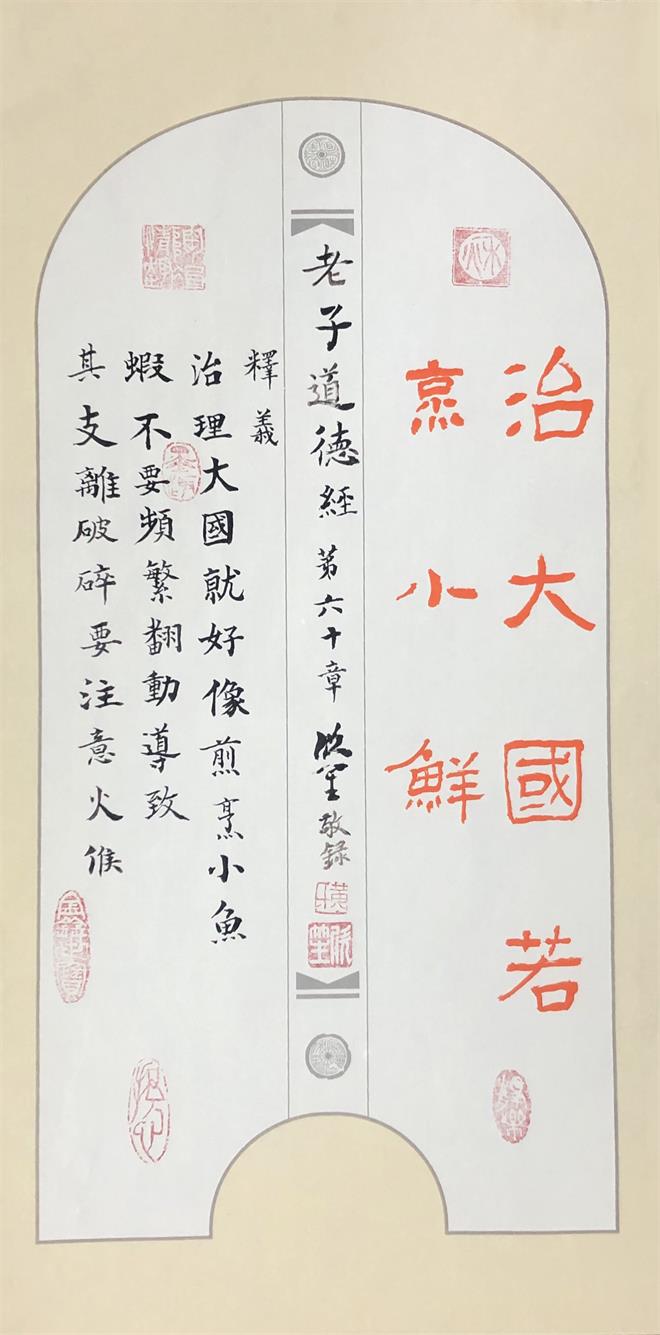 治大國若
烹小鮮
老子道德經 第六十章 欣笙敬録
釋義
治理大國就好像煎烹小魚
蝦不要頻繁翻動導致
其支離破碎要注意火候